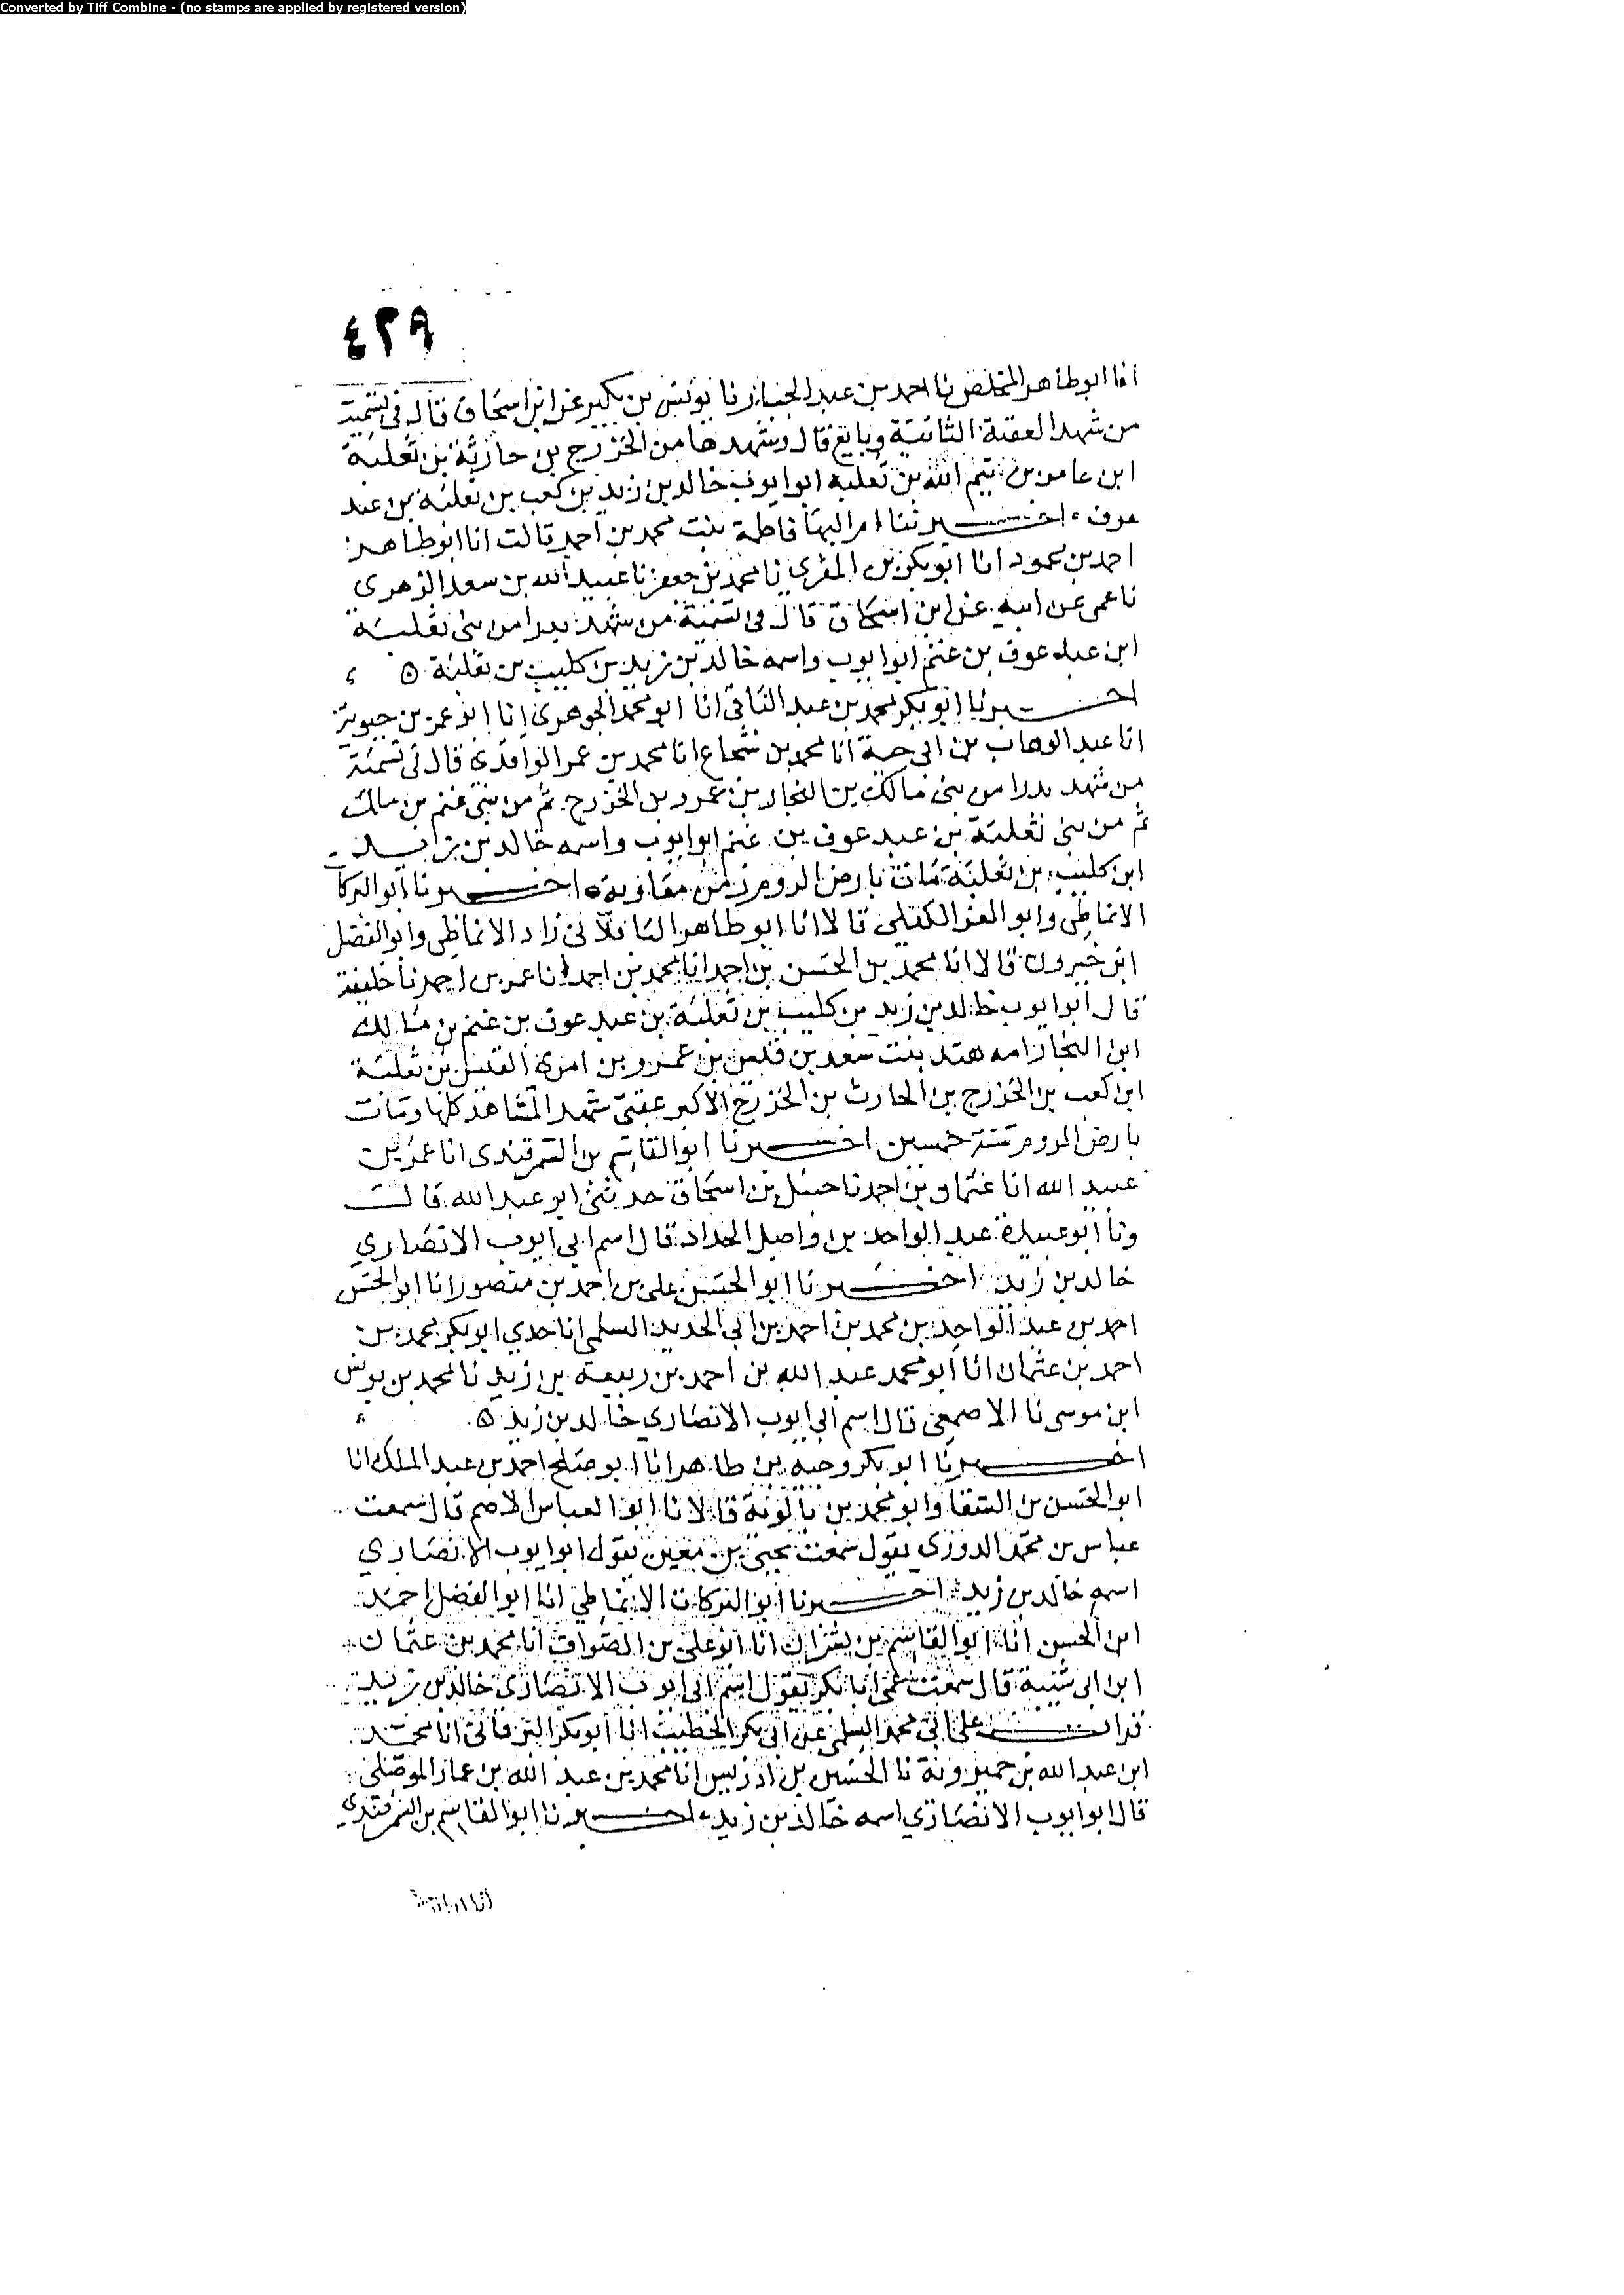 Converted by Tiff Combine - (no stamps are applied by registered version)
٤٢٩
انا ابو طاهر المخلص نا احمد بن عبد الجبار نا يونس بن بكير عن ابن اسحاق قال في تسمية
من شهد العقبة الثانية وبايع قال وشهدها من الخزرج بن حارثة بن ثعلبة
ابن عامر بن تيم الله بن ثعلبه ابو ايوب خالد بن زيد بن كعب بن ثعلبة بن عبد
عوف اخبرتنا ام البها فاطمة بنت محمد بن احمد قالت انا ابو طاهر
احمد بن محمود انا ابو بكر بن المقري نا محمد بن جعفر نا عبيد الله بن سعد الزهري
نا عمي عن ابيه عن ابن اسحاق قال في تسمية من شهد بدرا من بني ثعلبة
ابن عبد عوف بن غنم ابو ايوب واسمه خالد بن زيد بن كليب بن ثعلبة ٥
اخبرنا ابو بكر محمد بن عبد الباقي انا ابو محمد الجوهري انا ابو عمر بن حيوية
انا عبد الوهاب بن ابي حية انا محمد بن شجاع انا محمد بن عمر الواقدي قال في تسمية
من شهد بدرا من بني مالك بن النجار بن عمرو بن الخزرج ثم من بني غنم بن مالك
ثم من بني ثعلبة بن عبد عوف بن غنم ابو ايوب واسمه خالد بن زيد
ابن كليب بن ثعلبة مات بارض الروم زمن معاوية ٥ اخبرنا ابو البركات
الانماطي وابو العز الكيلي قالا انا ابو طاهر الباقلاني زاد الانماطي وابو الفضل
ابن خيرون قالا انا محمد بن الحسن بن احمد انا محمد بن احمد انا عمر بن احمد نا خليفة
قال ابو ايوب خالد بن زيد بن كليب بن ثعلبة بن عبد عوف بن غنم بن مالك
ابن النجار امه هند بنت سعد بن قيس بن عمرو بن امرئ القيس بن ثعلبة
ابن كعب بن الخزرج بن الحارث بن الخزرج الاكبر عقبي شهد المشاهد كلها ومات
بارض الروم سنة خمسين اخبرنا ابو القاسم بن السمرقندي انا عمر بن
عبيد الله انا عثمان بن احمد نا حنبل بن اسحاق حدثني ابو عبد الله قال
ونا ابو عبيدة عبد الواحد بن واصل الحداد قال اسم ابي ايوب الانصاري
خالد بن زيد اخبرنا ابو الحسن علي بن احمد بن منصور انا ابو الحسن
احمد بن عبد الواحد بن محمد بن احمد بن ابي الحديد السلمي انا جدي ابو بكر محمد بن
احمد بن عثمان انا ابو محمد عبد الله بن احمد بن ربيعة بن زيد نا محمد بن يونس
ابن موسى نا الاصمعي قال اسم ابي ايوب الانصاري خالد بن زيد ٥
اخبرنا ابو بكر وجيه بن طاهر انا ابو صالح احمد بن عبد الملك انا
ابو الحسن بن السقا وابو محمد بن بالوية قالا نا ابو العباس الاصم قال سمعت
عباس بن محمد الدوري يقول سمعت يحيى بن معين يقول ابو ايوب الانصاري
اسمه خالد بن زيد اخبرنا ابو البركات الانماطي انا ابو الفضل احمد
ابن الحسن انا ابو القاسم بن بشران انا ابو علي بن الصواف انا محمد بن عثمان
ابن ابي شيبة قال سمعت عمي ابا بكر يقول اسم ابي ايوب الانصاري خالد بن زيد
قرات على ابي محمد السلمي عن ابي بكر الخطيب انا ابو بكر البرقاني انا محمد
ابن عبد الله بن خميروية نا الحسين بن ادريس انا محمد بن عبد الله بن عمار الموصلي
قال ابو ايوب الانصاري اسمه خالد بن زيد اخبرنا ابو القاسم بن السمرقندي